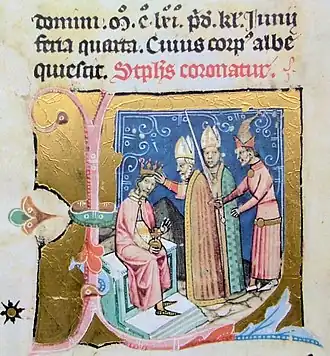 domini. Mͦ. cͦ. lxiͦ. pͥd. kl̓. Junij
feria quarta. Cuius corpꝰ albe
quiescit. Stph̅s coronatur.